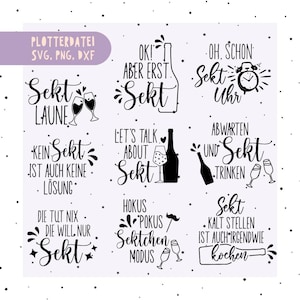 PLOTTERDATEI
SVG, PNG, DXF
Sekt
LAUNE
OK!
ABER ERST
Sekt
OH, SCHON
Sekt
Uhr
KEIN Sekt
IST AUCH KEINE
LÖSUNG
LET'S TALK
ABOUT
Sekt
ABWARTEN
UND Sekt
TRINKEN
DIE TUT NIX
DIE WILL NUR
Sekt
HOKUS
POKUS
Sektchen
MODUS
Sekt
KALT STELLEN
IST AUCH IRGENDWIE
kochen